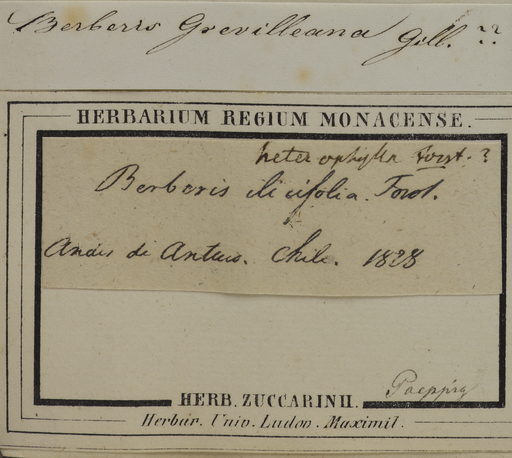 Berberis Grevilleana Gill. ??
HERBARIUM REGIUM MONACENSE.
heterophylla Forst. ?
Berberis ilicifolia. Forst.
Andes de Antuco. Chile. 1828
Poeppig
HERB. ZUCCARINII.
Herbar. Univ. Ludov. Maximil.